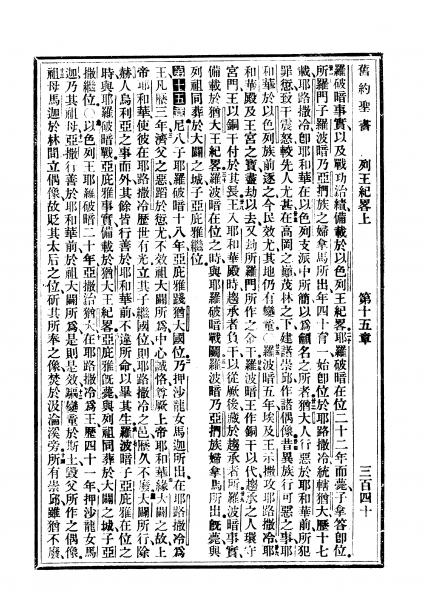 舊約聖書 列王紀畧上 第十五章 三百四十
羅破暗事實以及戰功治績備載於以色列王紀畧耶羅破暗在位二十二年而薨子拿答卽位
所羅門子羅波暗乃亞捫族之婦拿馬所出年四十有一始卽位於耶路撒冷統轄猶大歷十七
載耶路撒冷卽耶和華在以色列支派中所簡以爲籲名之所者猶大人行惡於耶和華前所犯
罪愆致干震怒較先人尤甚在高岡之巔茂林之下建諸崇邱作諸偶像昔異族行可惡之事耶
和華於以色列族前逐之今民效尤其地仍有孌童○羅波暗五年埃及王示撒攻耶路撒冷耶
和華殿及王宮之寶盡劫以去又劫所羅門所作之金干羅波暗王作銅干以代趨承之人環守
宮門王以銅干付於其長王入耶和華殿時趨承者負干以從厥後藏於趨承者所羅波暗事實
備載於猶大王紀畧羅波暗在位之時與耶羅破暗戰鬭羅波暗乃亞捫族婦拿馬所出旣薨與
列祖同葬於大闢之城子亞庇雅繼位
第十五章 尼八子耶羅破暗十八年亞庇雅踐猶大國位乃押沙龍女馬迦所出在耶路撒冷爲
王凡歷三年濟父之惡陷於愆尤不效祖大闢所爲中心誠恪專厥上帝耶和華緣大闢之故上
帝耶和華使彼在耶路撒冷歷世有光立其子繼國位則耶路撒冷之邑歷久不廢大闢所行除
赫人烏利亞之事而外其餘皆行善於耶和華前不違所命以畢其生羅破暗子亞庇雅在位之
時與耶羅破暗戰亞庇雅事實備載於猶大王紀畧亞庇雅旣薨與列祖同葬於大闢之城子亞
撒繼位○以色列王耶羅破暗二十年亞撒治猶大在耶路撒冷爲王歷四十一年押沙龍女馬
迦乃其祖母亞撒行善於耶和華前於祖大闢所爲是則是效驅孌童於斯土毀父所作之偶像
祖母馬迦於林間立偶像故貶其太后之位斫其所奉之像焚於汲淪溪旁所有崇邱雖猶不廢